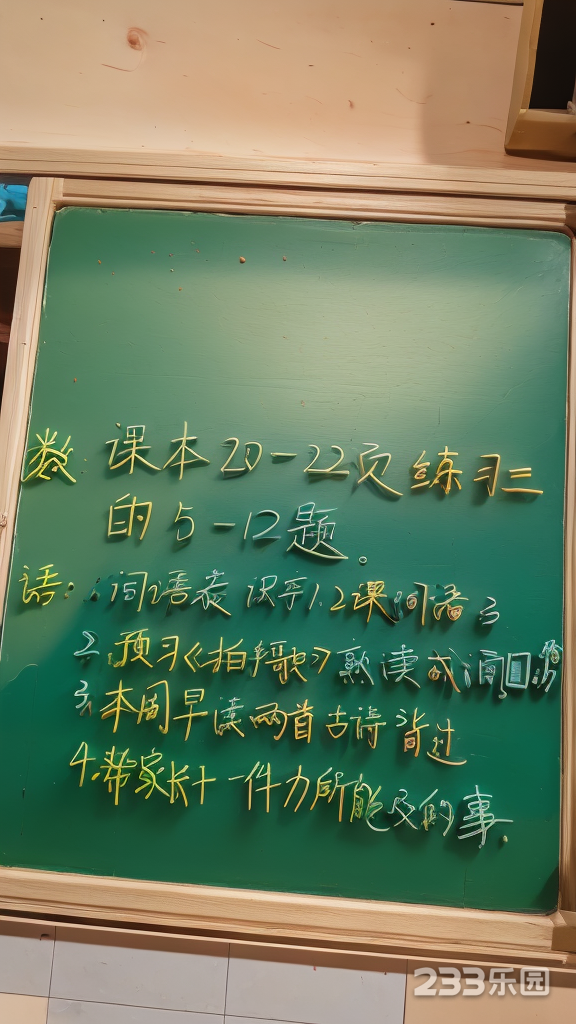 数 课本20-22页练习三
的5-12题。
语: 词语表 识字1.2课词语3
2.预习《拍手歌》熟读
3.本周早读两首古诗背过
4.帮家长干一件力所能及的事.
233乐园